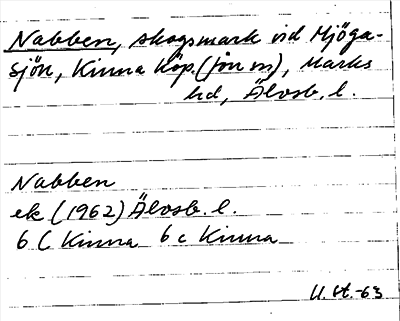 Nabben, skogsmark vid Mjöga-
sjön, Kinna köp. (jon m), Marks
hd, Älvsb. l.
Nabben
ek (1962) Älvsb. l.
6 C Kinna 6 c Kinna
U. vt.-63